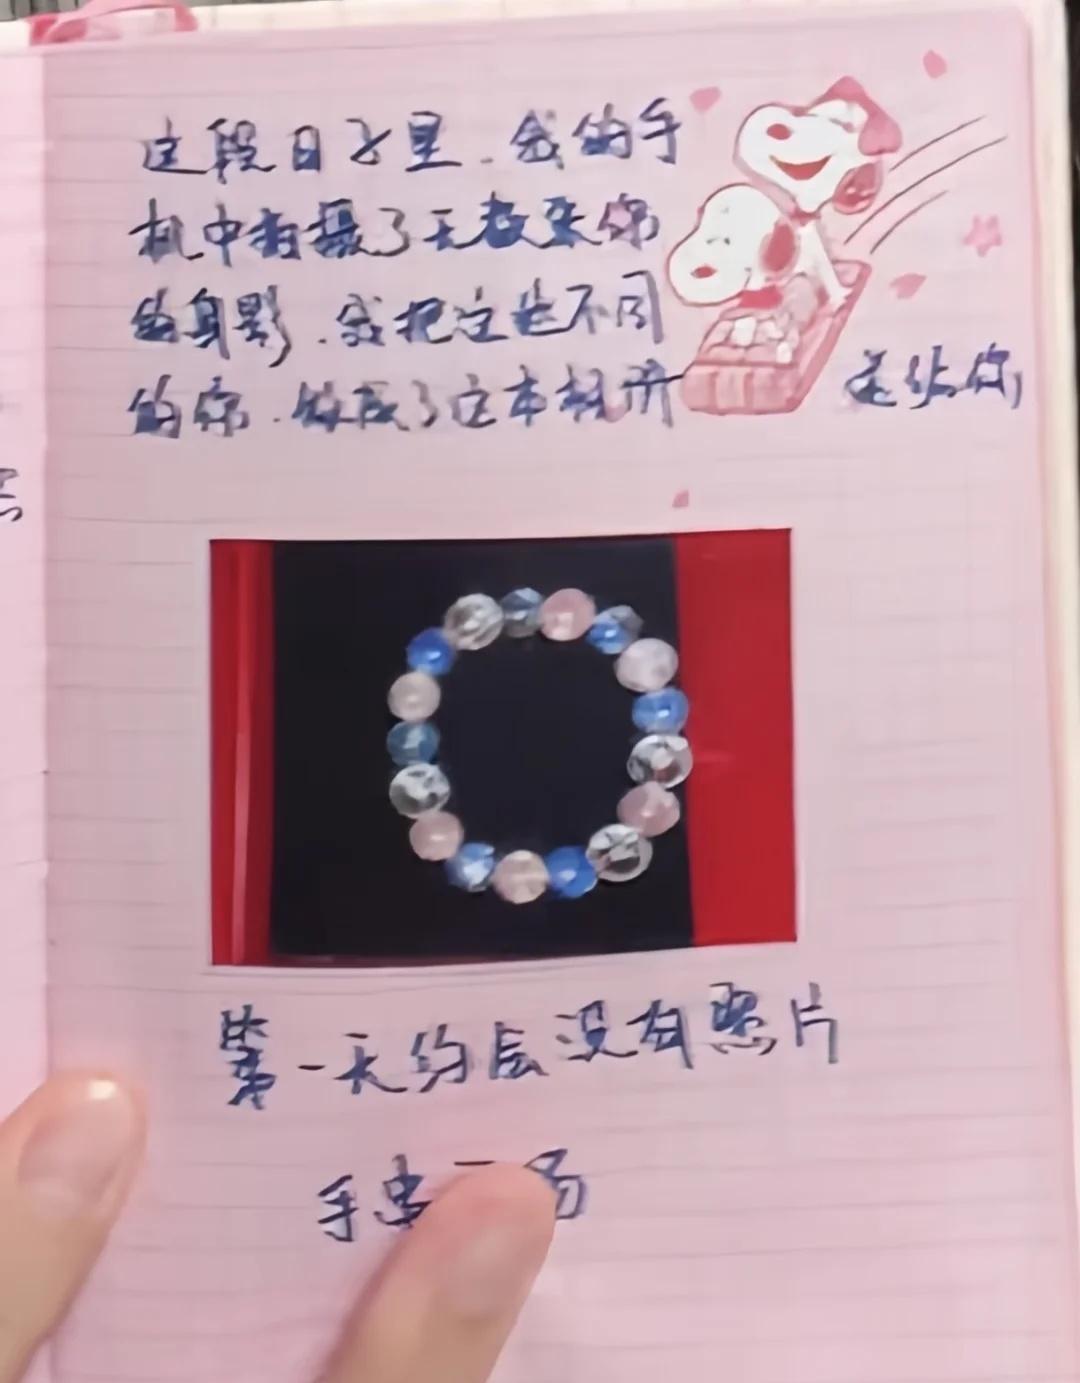 这段日子里.我的手
机中拍摄了无数张你
的身影.我把这些不同
的你.做成了这本相册 送给你
第一天约会没有照片
手串